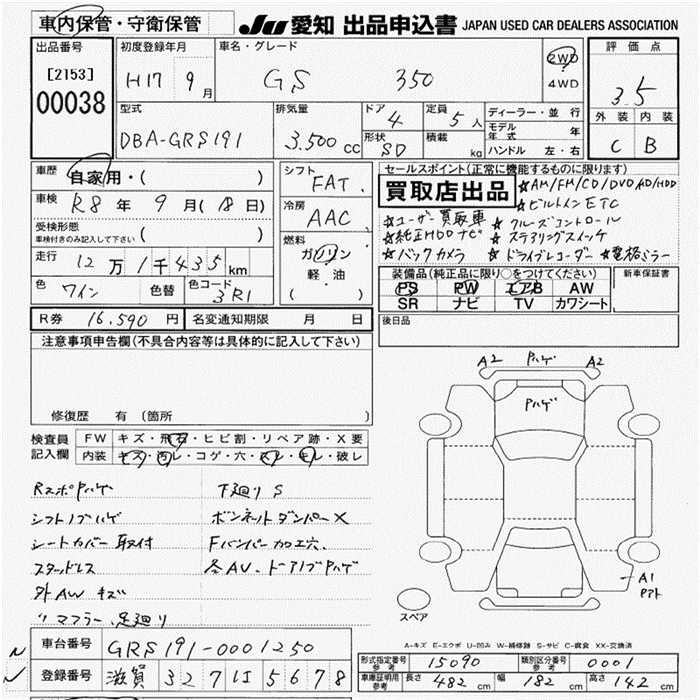 車内保管・守衛保管
JU 愛知 出品申込書 JAPAN USED CAR DEALERS ASSOCIATION
出品番号
[2153]
00038
初度登録年月
H17 9 月
車名・グレード
GS 350
2WD
4WD
評価点
3.5
外装 内装
C B
型式
DBA-GRS191
排気量
3.500 cc
ドア 4
形状 SD
定員 5 人
積載 kg
ディーラー・並行
モデル年式 年
ハンドル 左・右
車歴 自家用・( )
車検 R8 年 9 月 (18 日)
受検形態
車検付きのみ記入して下さい ( )
走行 12 万 1 千 4 3 5 km
色 ワイン 色替 色コード 3R1
シフト FAT.
冷房 AAC.
燃料
ガソリン
軽・油
( )
セールスポイント(正常に機能するものに限ります)
買取店出品
☆AM/FM/CD/DVD/AD/HDD
☆ビルトインETC
☆ユーザー買取車 ☆クルーズコントロール
☆純正HDDナビ ☆ステアリングスイッチ
☆バックカメラ ☆ドライブレコーダー ☆電格ミラー
装備品(純正品に限り○をつけてください) 新車保証書
PS PW エアB AW
SR ナビ TV カワシート
R券 16.590 円 名変通知期限 月 日
後日品
注意事項申告欄(不具合内容等は具体的に記入して下さい)
修復歴 有(箇所
検査員記入欄
FW キズ・飛石・ヒビ割・リペア跡・X要
内装 キズ・汚レ・コゲ・穴・スレ・キレ・破レ
A2 Pハゲ A2
Pハゲ
RスポPハゲ 下廻りS
シフトノブハゲ ボンネットダンパーX
シートカバー取付 Fバンパー加工穴.
スタッドレス 各AV.ドアノブPハゲ
外AWキズ
〃マフラー、足廻り
A1
スペア
A-キズ E-エクボ U-凹み W-補修跡 S-サビ C-腐食 XX-交換済
車台番号 GRS191-0001250
登録番号 滋賀 327 5678
型式指定番号 参考 15090 類別区分番号 参考 0001
車庫証明用参考 長さ 482 cm 幅 182 cm 高さ 142 cm